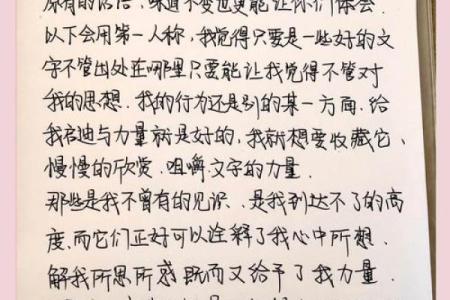 原有的话语、味道不变也更能让你们体会.
以下会用第一人称,我觉得只要是一些好的文
字不管出处在哪里只要能让我觉得不管对
我的思想、我的行为还是别的某一方面.给
我启迪与力量就是好的,我就想要收藏它、
慢慢的欣赏、咀嚼文字的力量.
那些是我不曾有的见识、是我到达不了的高
度.而它们正好可以诠释了我心中所想.
解我所思所惑既而又给予了我力量.